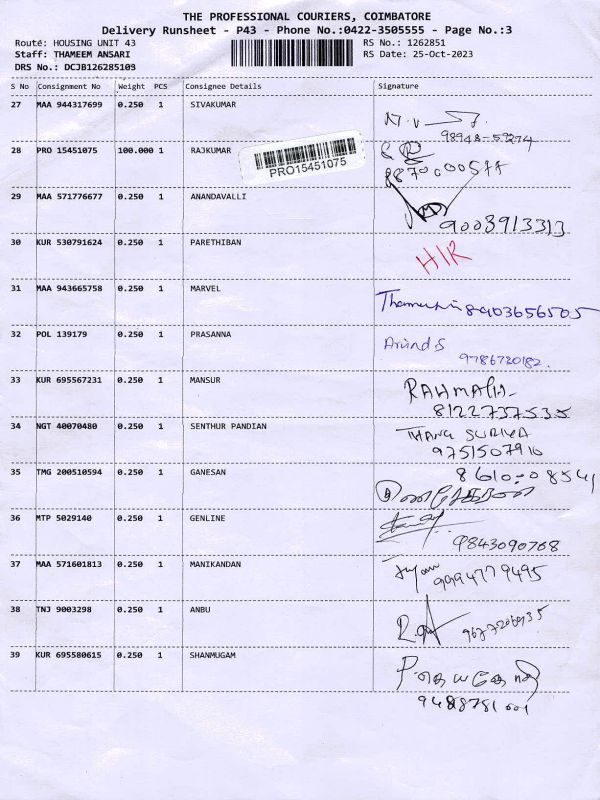 THE PROFESSIONAL COURIERS, COIMBATORE
Delivery Runsheet - P43 - Phone No.:0422-3505555 - Page No.:3
Route: HOUSING UNIT 43 RS No.: 1262851
Staff: THAMEEM ANSARI RS Date: 25-Oct-2023
DRS No.: DCJB126285103
S No Consignment No Weight PCS Consignee Details Signature
27 MAA 944317699 0.250 1 SIVAKUMAR
98948-59274
28 PRO 15451075 100.000 1 RAJKUMAR
PRO15451075
29 MAA 571776677 0.250 1 ANANDAVALLI
9003913313
30 KUR 530791624 0.250 1 PARETHIBAN
31 MAA 943665758 0.250 1 MARVEL 8903656505
32 POL 139179 0.250 1 PRASANNA Arvind S
9786730182.
33 KUR 695567231 0.250 1 MANSUR
8122737535
34 NGT 40070480 0.250 1 SENTHUR PANDIAN THANG SURIYA
9751507910
35 TMG 200510594 0.250 1 GANESAN
36 MTP 5029140 0.250 1 GENLINE
9843090768
37 MAA 571601813 0.250 1 MANIKANDAN 9994779495
38 TNJ 9003298 0.250 1 ANBU
39 KUR 695580615 0.250 1 SHANMUGAM